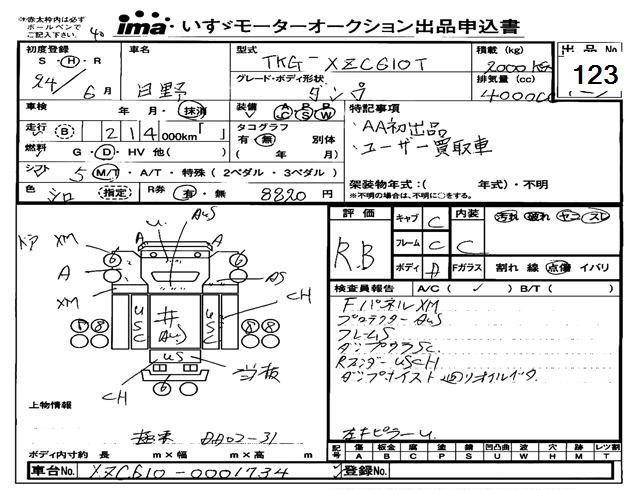 ※赤太枠内は必ず
ボールペンで
ご記入下さい。
ima いすゞモーターオークション出品申込書
初度登録 車名 型式 積載(kg) 出品No
S・H・R TKG-XZC610T 2000 KG 123
24年6月 日野 グレード・ボディ形状 排気量(cc)
ダンプ 4000CC
車検 年 月・抹消 装備 A/C P/S P/W 特記事項
走行(B) 214000km「 」 タコグラフ ・AA初出品
有・無 別体 ・ユーザー買取車
燃料 G・D・HV 他( ) ( 年 月)
シフト 5 M/T・A/T・特殊(2ペダル・3ペダル)
色 シロ 指定 R券 有・無 8820円 架装物年式:( 年式)・不明
※不明の場合は、不明に○をする。
評価 キャブ C 内装 汚れ 破れ ヤニ スレ
R.B フレーム C C
ボディ A Fガラス 割れ 線 点傷 イバリ
検査員報告 A/C( ✓ ) B/T( )
FパネルXM
プロテクターAuS
フレームS
ダンプウラSC
RフェンダーUSCH
ダンプホイスト廻りオイル
左キピラーU
ドア XM U AuS
A A A
6 6
A AS
XM CH
USC 井 AuS USC
8 8 8 8
US
CH 6
上物情報
極東 DD02-31
ボディ内寸約 長 m×幅 m×高 m
記号 傷 A 板金 B 腐 C 塗 P 錆 S 凹凸曲 U 波 W 穴 H 跡 M レツ割 T
車台No. XZC610-0001734 登録No.